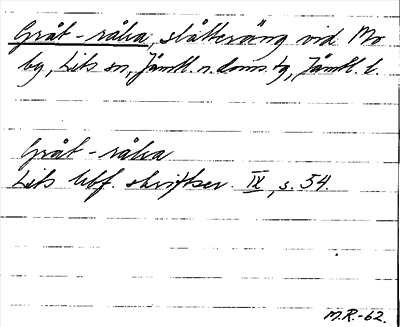 Gråt-råva, slåtteräng vid Mo
by, Lits sn, Jämtl. n. doms.tg, Jämtl. l.
Gråt-råva
Lits hbf. skriftser. IX, s. 54.
M.R.-62.